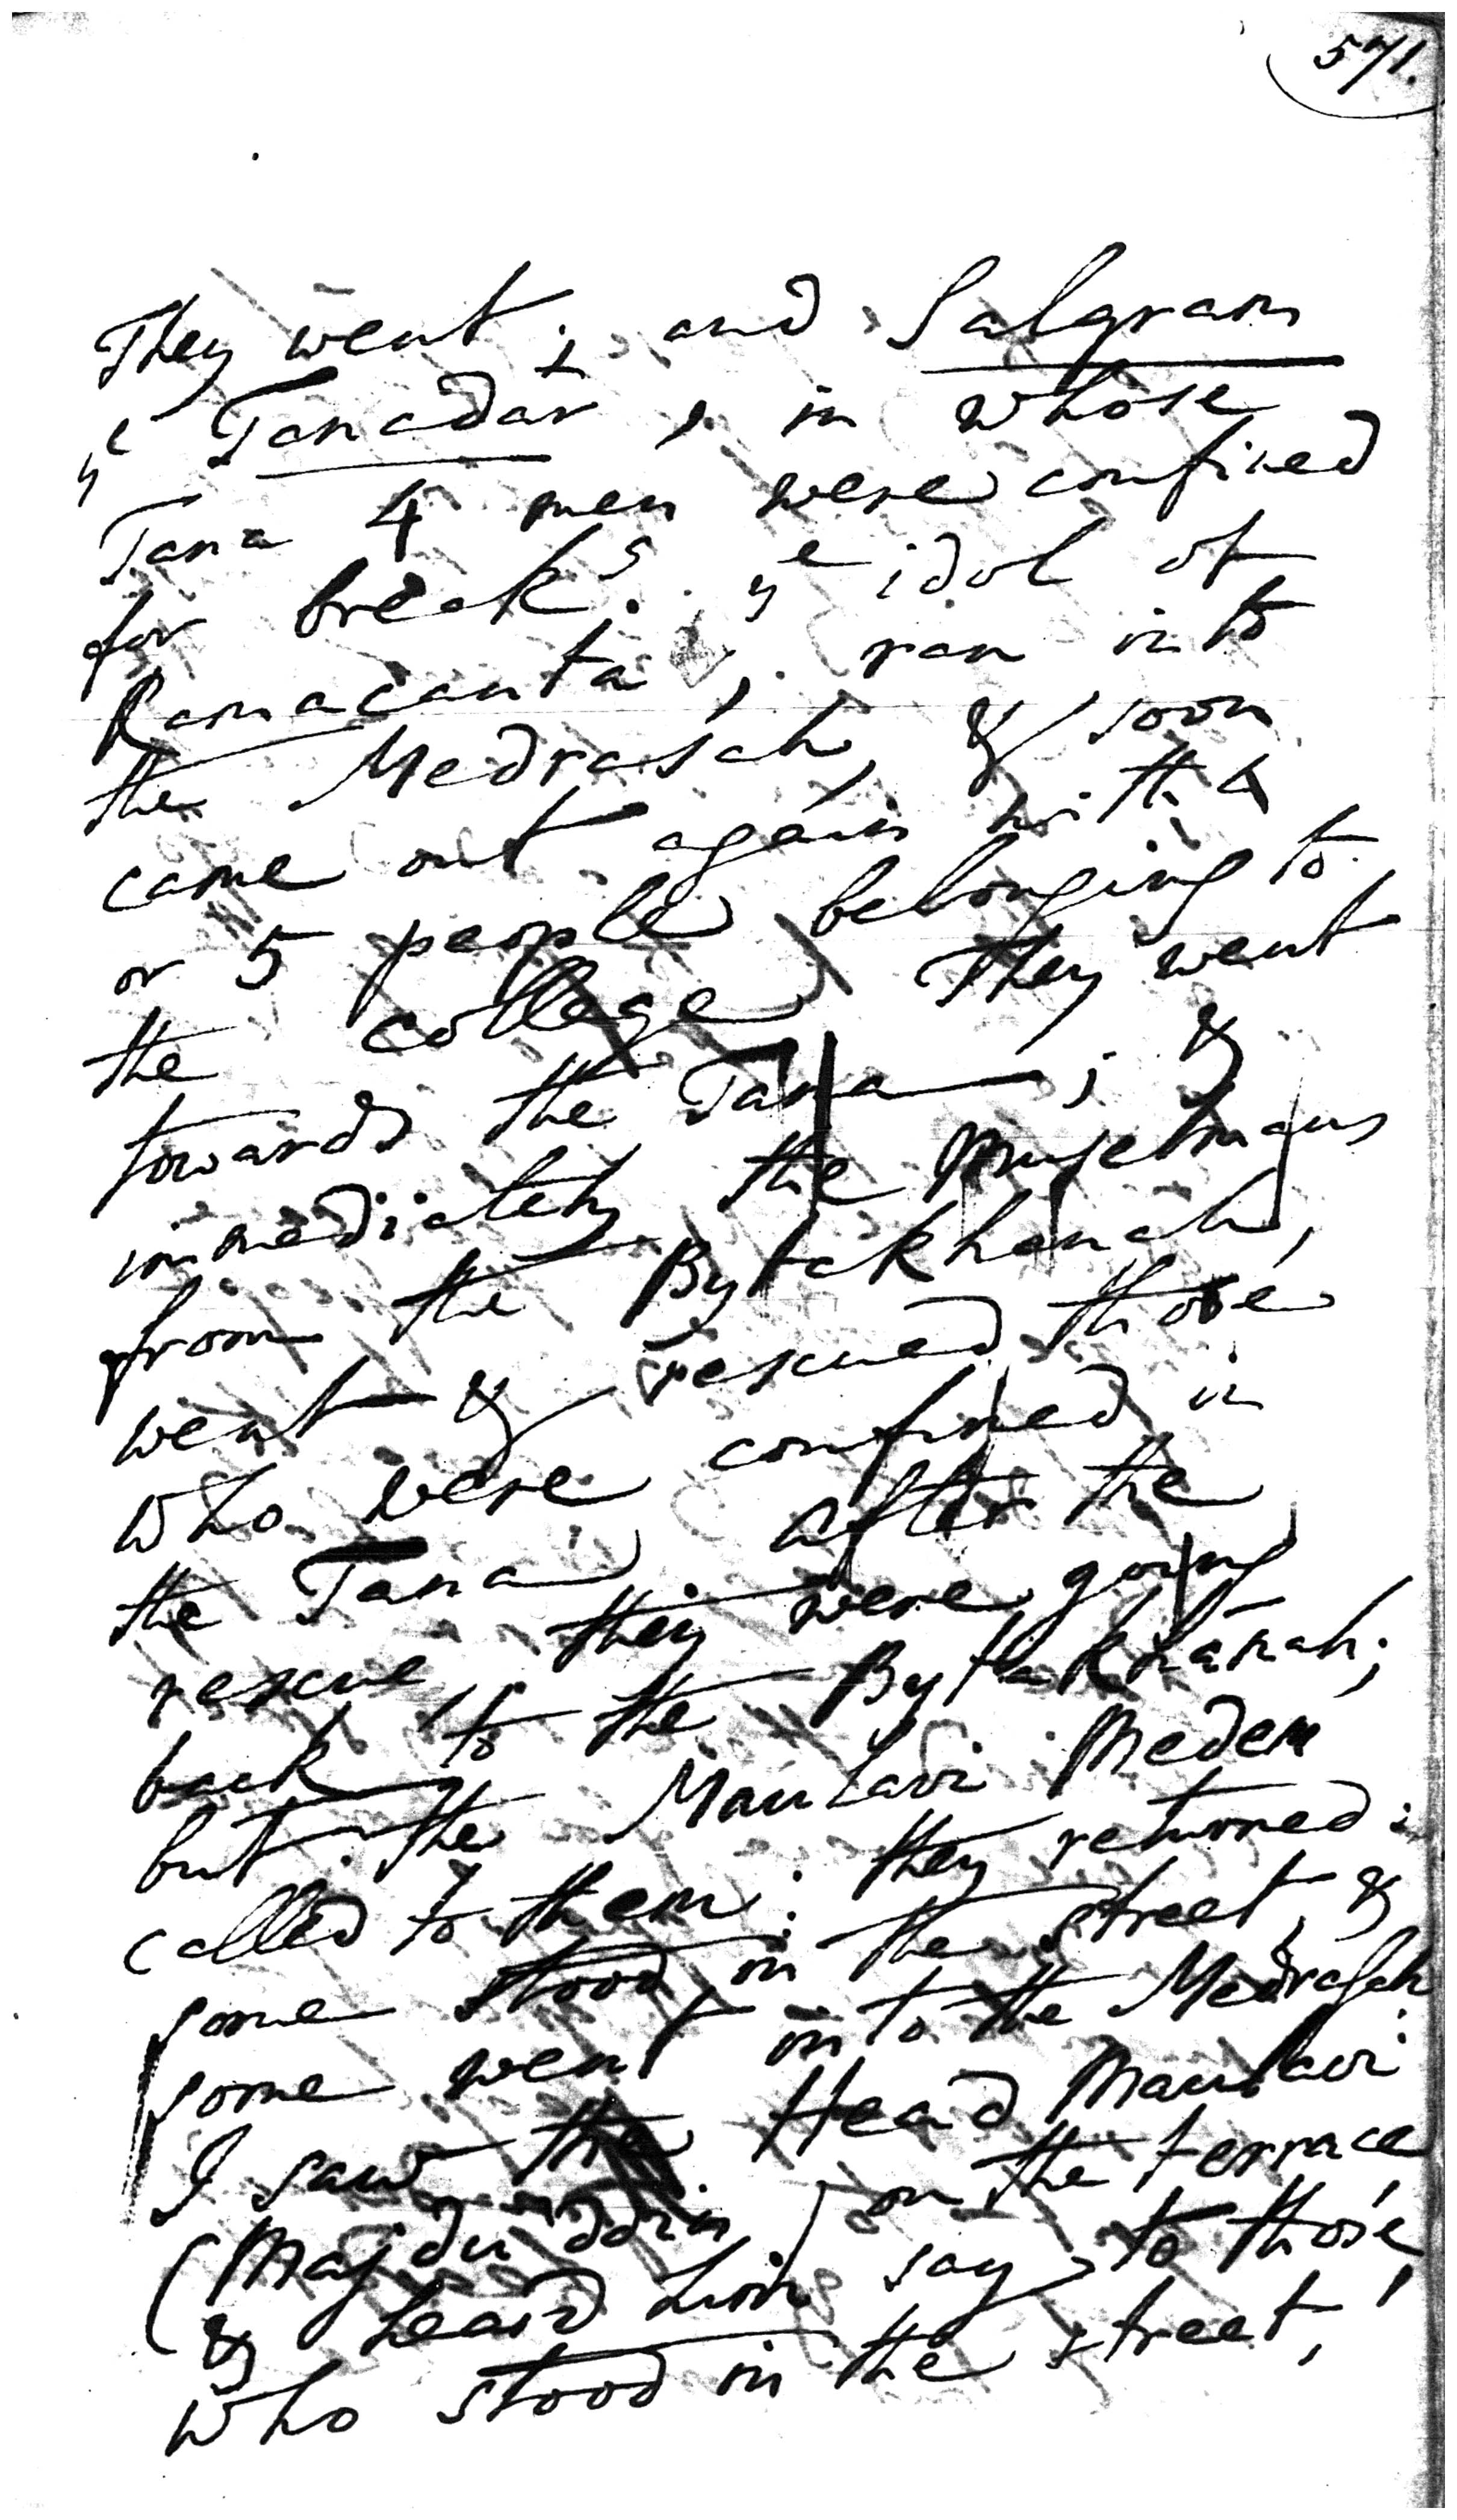 571.
They went; and Salgram
yᵉ Tanadar, in whose
Tana 4 men were confined
for breakᵍ. yᵉ idol of
Ramacanta, ran into
the Medrasah, & soon
came out again with 4
or 5 people belonging to
the college They went
towards the Tana; &
immediately the Muselmans
from the Bytakhanah,
went & rescued those
who were confined in
the Tana after the
rescue, they were going
back to the Bytakhanah;
but the Maulavi Meden
called to them: they returned:
some stood in the street, &
some went into the Medrasah
I saw the Head Maulavi
(Majdu'ddin) on the terrace
& heard him say to those,
who stood in the street,